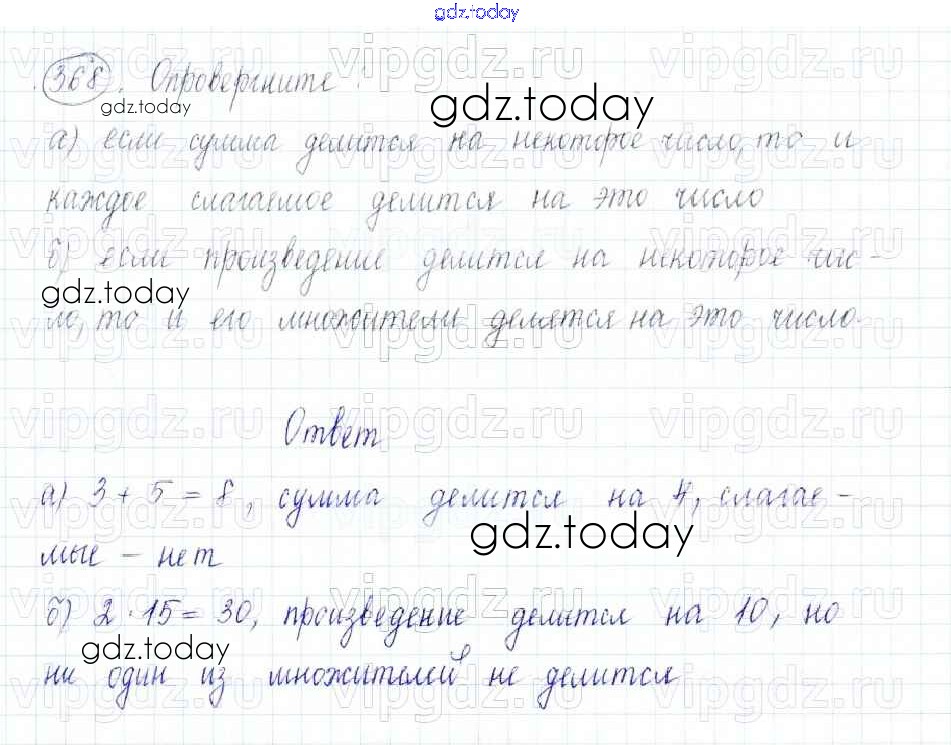 gdz.today
368. Опровергните:
gdz.today
gdz.today
а) если сумма делится на некоторое число, то и
каждое слагаемое делится на это число
б) если произведение делится на некоторое чис-
gdz.today
ло, то и его множители делятся на это число.
Ответ
а) 3 + 5 = 8, сумма делится на 4, слагае-
gdz.today
мые - нет
б) 2 · 15 = 30, произведение делится на 10, но
gdz.today
ни один из множителей не делится
vipgdz.ru